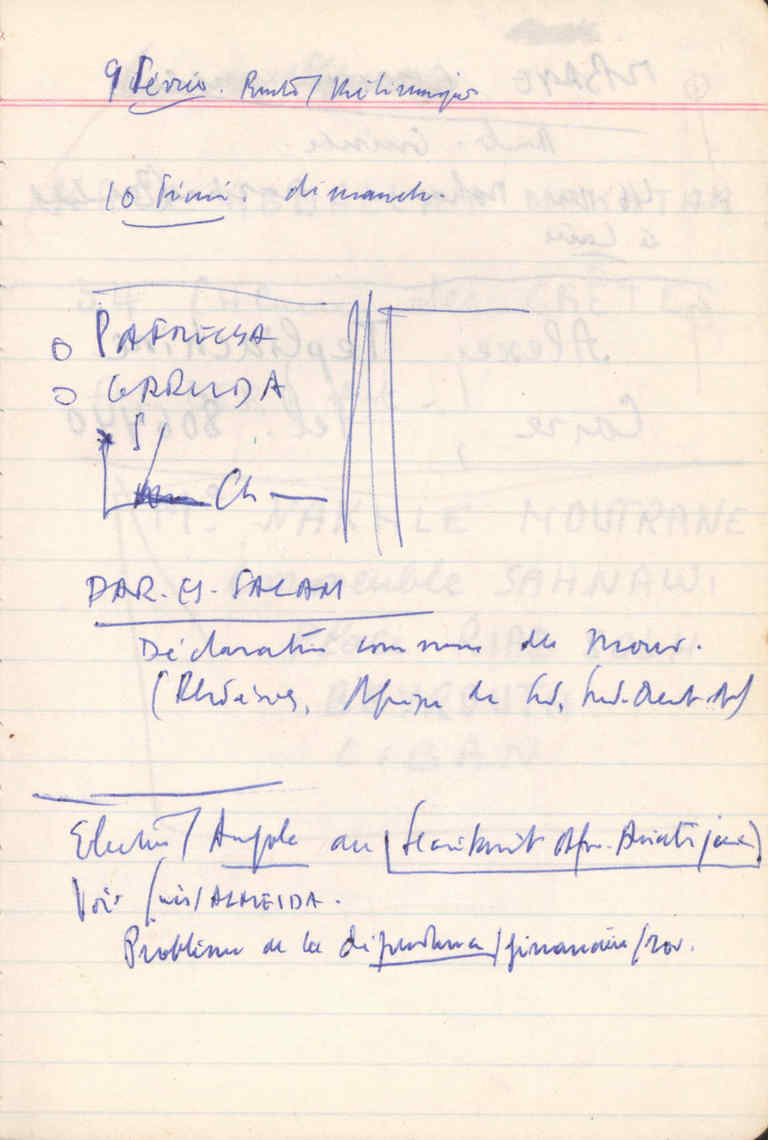 9 Février. / Kilimanjaro
10 Février. dimanche.
o PATRICIA
o GARRUDA
Ch —
DAR-ES-SALAM
Déclaration commune des mouv.
(Rhodésie, Afrique du Sud, Sud-Ouest Af)
Election / Angola au Secrétariat Afro-Asiatique
Voir Luis / ALMEIDA.
Problème de la dépendance / financière / sov.